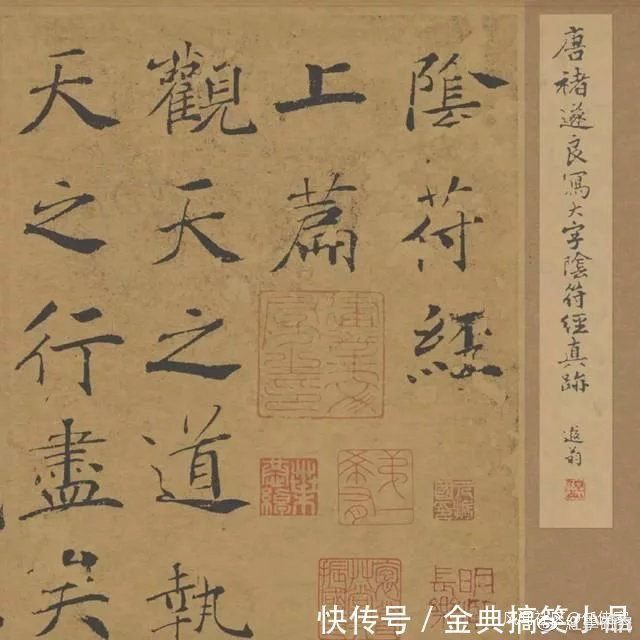 唐褚遂良寫大字陰符經真跡
遐菴
陰符經
上篇
觀天之道執
天之行盡矣
快传号／金典搞笑小品